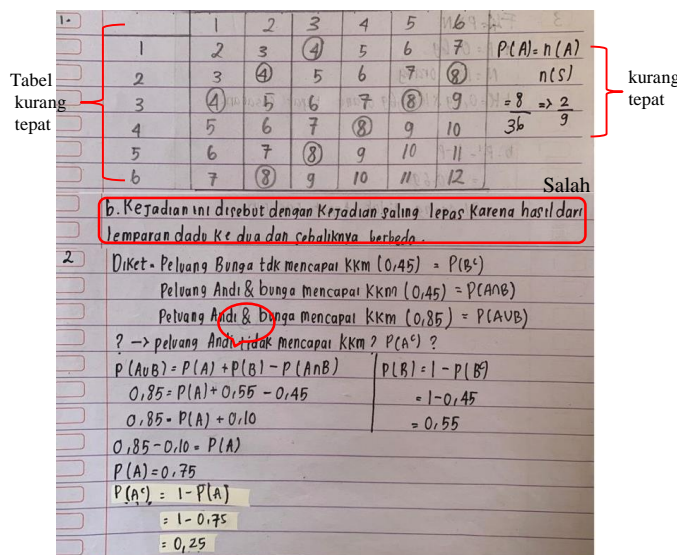 1.
1 2 3 4 5 6
1 2 3 4 5 6 7 P(A) = n(A)
2 3 4 5 6 7 8 n(S)
3 4 5 6 7 8 9 = 8 => 2
4 5 6 7 8 9 10 36 9
5 6 7 8 9 10 11
6 7 8 9 10 11 12
Tabel
kurang
tepat
kurang
tepat
Salah
b. Kejadian ini disebut dengan Kejadian saling lepas karena hasil dari
lemparan dadu ke dua dan sebaliknya berbeda.
2 Diket = Peluang Bunga tdk mencapai KKM (0,45) = P(Bᶜ)
Peluang Andi & bunga mencapai KKM (0,45) = P(A∩B)
Peluang Andi & bunga mencapai KKM (0,85) = P(A∪B)
? -> peluang Andi tidak mencapai KKM? P(Aᶜ) ?
P(A∪B) = P(A) + P(B) - P(A∩B) P(B) = 1 - P(Bᶜ)
0,85 = P(A) + 0,55 - 0,45 = 1 - 0,45
0,85 = P(A) + 0,10 = 0,55
0,85 - 0,10 = P(A)
P(A) = 0,75
P(Aᶜ) = 1 - P(A)
= 1 - 0,75
= 0,25